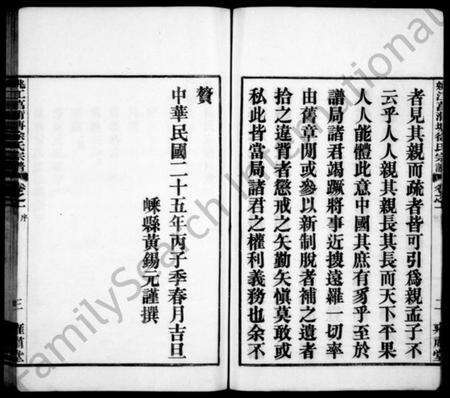 者見其親而疏者皆可引爲親孟子不
云乎人人親其親長其長而天下平果
人人能體此意中國其庶有豸乎至於
譜局諸君竭蹶將事近搜遠羅一切率
由舊章閒或參以新制脫者補之遺者
拾之違背者懲戒之矢勤矢愼莫敢或
私此皆當局諸君之權利義務也余不
贅
中華民國二十五年丙子季春月吉旦
嵊縣黃錫元謹撰
卷之一
序
二
三
FamilySearch International